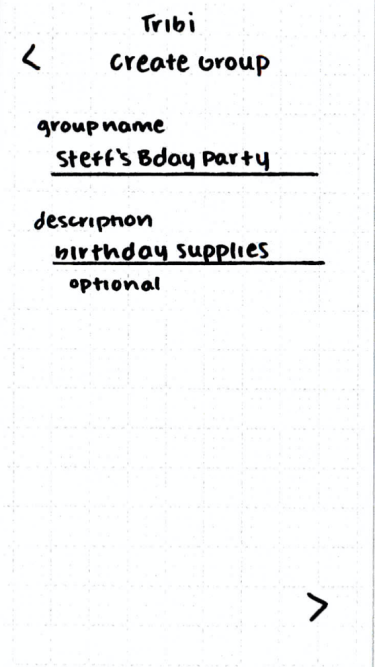 Tribi
< Create Group
group name
Steff's Bday Party
description
birthday supplies
optional
>